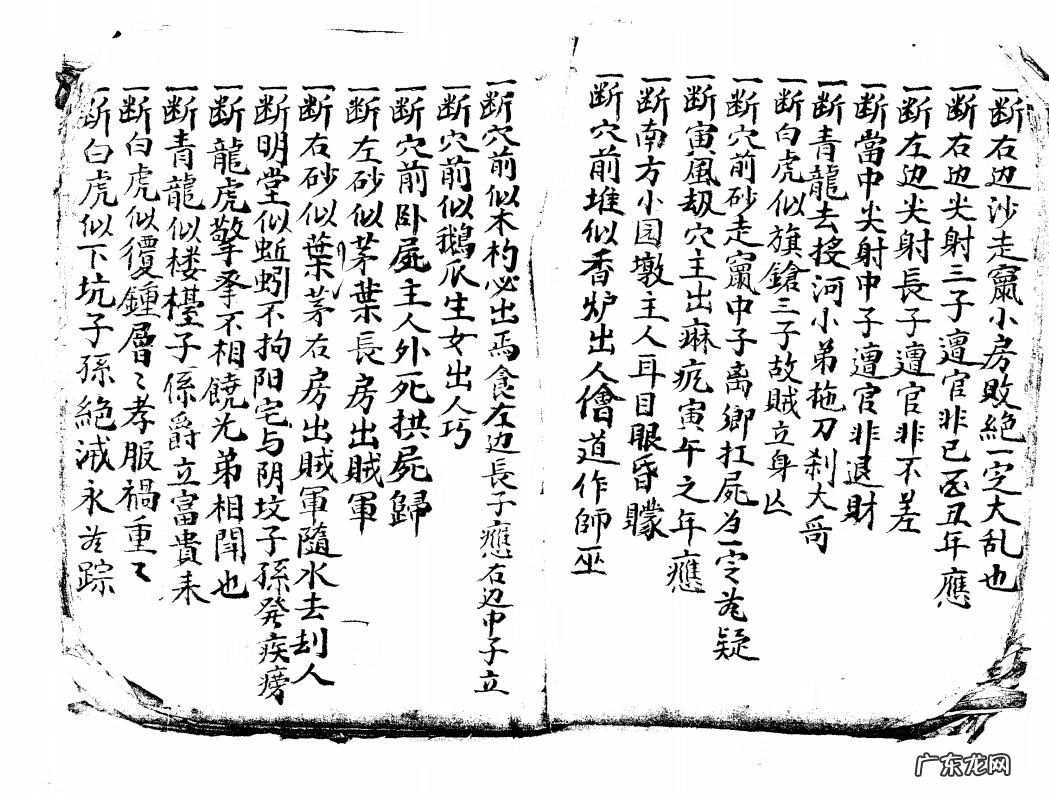 一断右边沙走竄小房敗絶一定大乱也
一断右边尖射三子遭官非巳酉丑年應
一断左边尖射長子遭官非不差
一断當中尖射中子遭官非退財
一断青龍去授河小弟拖刀剎大哥
一断白虎似旗鎗三子故賊立身亡
一断穴前砂走竄中子离鄉扛屍为一定無疑
一断寅風刼穴主出麻疙寅午之年應
一断南方小园墩主人耳目眼昏矇
一断穴前堆似香炉出人僧道作師巫
一断穴前似木杓必出焉食左边長子應右边中子立
一断穴前似鵝爪生女出人巧
一断穴前卧屍主人外死拱屍歸
一断左砂似茅葉長房出賊軍
一断右砂似葉茅右房出賊軍隨水去刮人
一断明堂似蚯蚓不拘阳宅与阴坟子孫發疾癆
一断龍虎擎拳不相饒兄弟相閗也
一断青龍似楼檯子係爵立富貴来
一断白虎似覆鍾層〻孝服禍重〻
一断白虎似下坑子孫絶滅永無踪
广东龙网